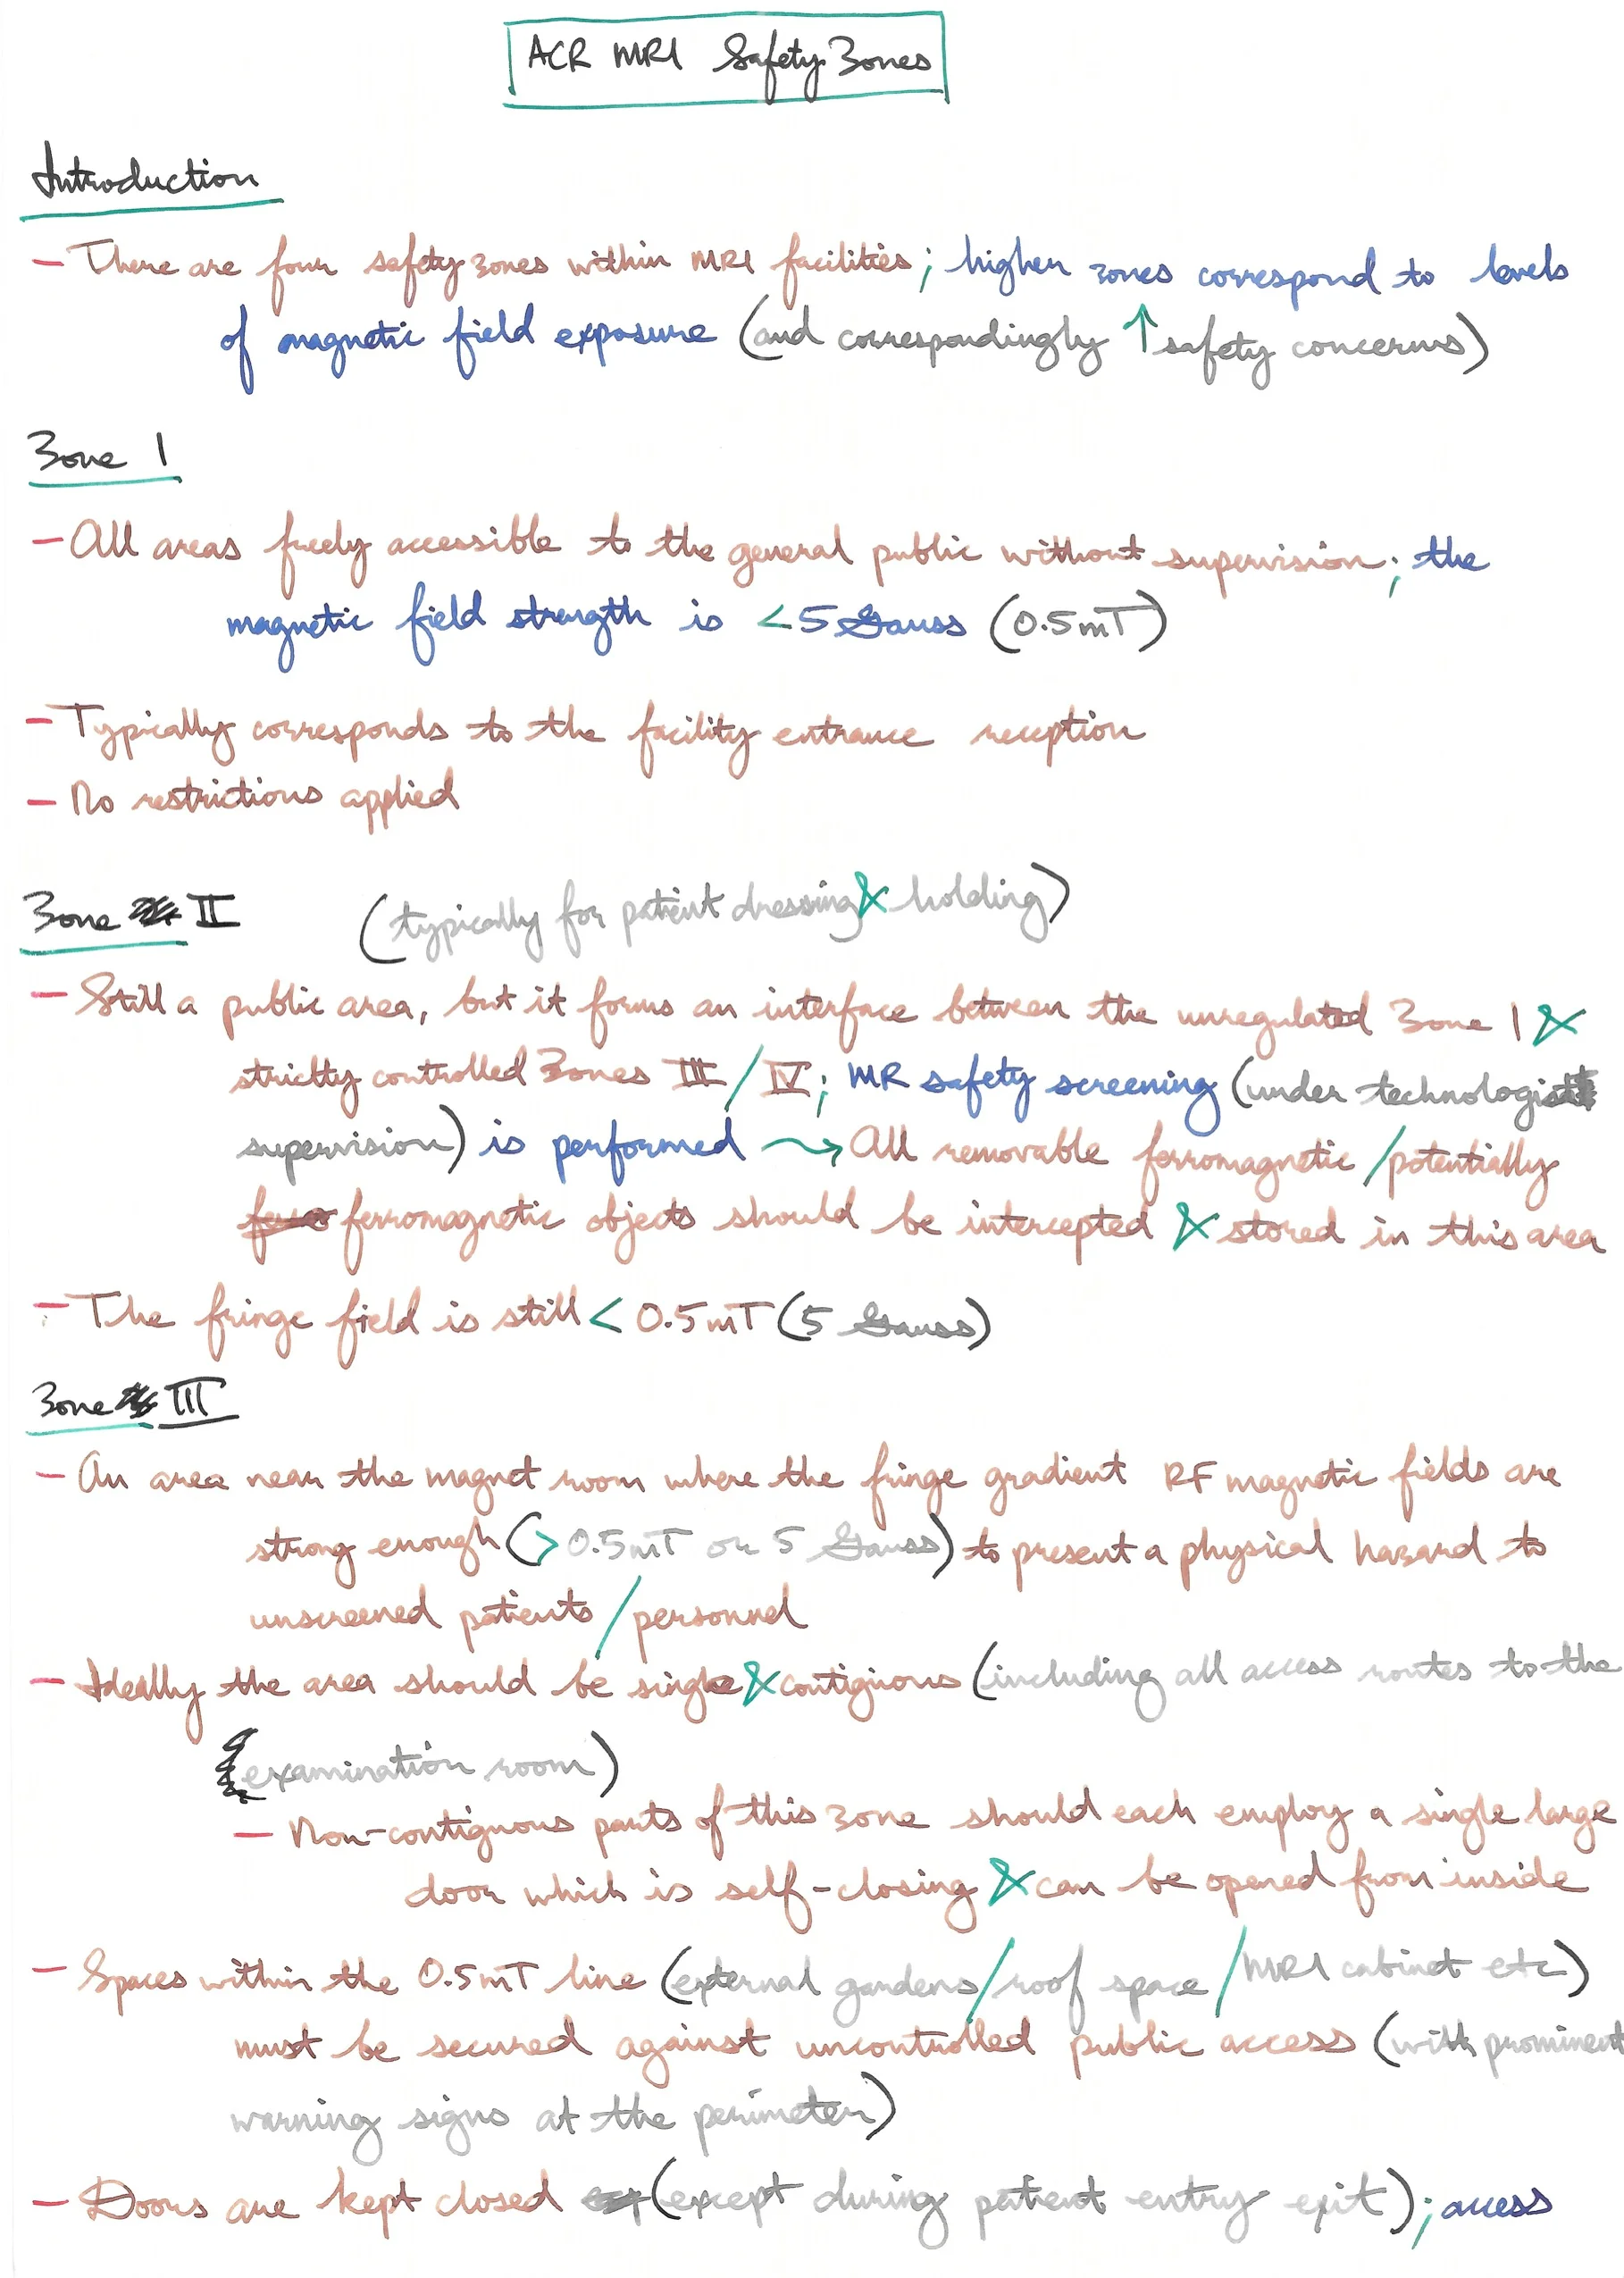 ACR MRI Safety Zones
Introduction
- There are four safety zones within MRI facilities; higher zones correspond to levels
of magnetic field exposure (and correspondingly ↑ safety concerns)
Zone I
- All areas freely accessible to the general public without supervision; the
magnetic field strength is <5 Gauss (0.5mT)
- Typically corresponds to the facility entrance reception
- No restrictions applied
Zone II (typically for patient dressing & holding)
- Still a public area, but it forms an interface between the unregulated Zone I &
strictly controlled Zones III / IV; MR safety screening (under technologist
supervision) is performed → All removable ferromagnetic / potentially
ferromagnetic objects should be intercepted & stored in this area
- The fringe field is still < 0.5mT (5 Gauss)
Zone III
- An area near the magnet room where the fringe gradient RF magnetic fields are
strong enough (> 0.5mT or 5 Gauss) to present a physical hazard to
unscreened patients / personnel
- Ideally the area should be single & contiguous (including all access routes to the
examination room)
- Non-contiguous parts of this zone should each employ a single large
door which is self-closing & can be opened from inside
- Spaces within the 0.5mT line (external gardens / roof space / MRI cabinet etc)
must be secured against uncontrolled public access (with prominent
warning signs at the perimeter)
- Doors are kept closed (except during patient entry exit); access